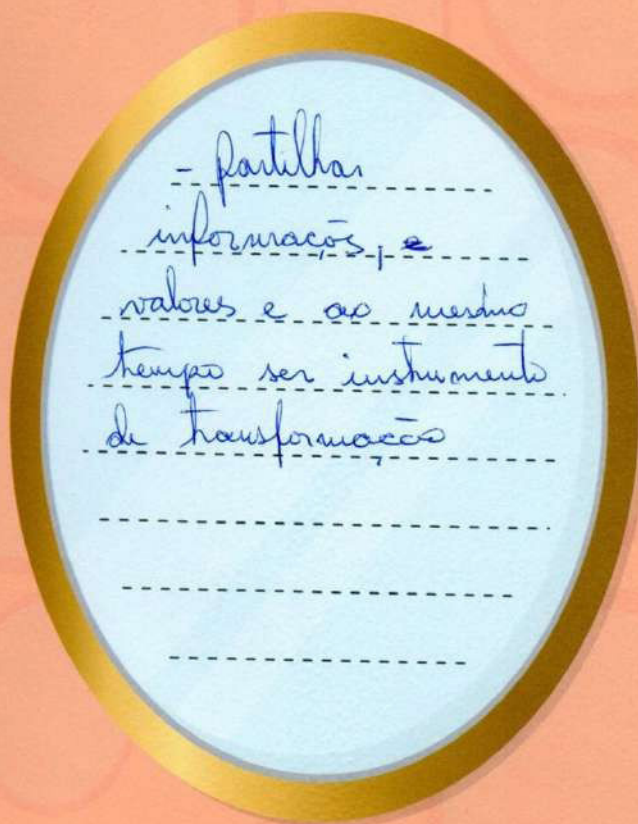 - partilhar
informaçõs, e
valores e ao mesmo
tempo ser instrumento
de transformação